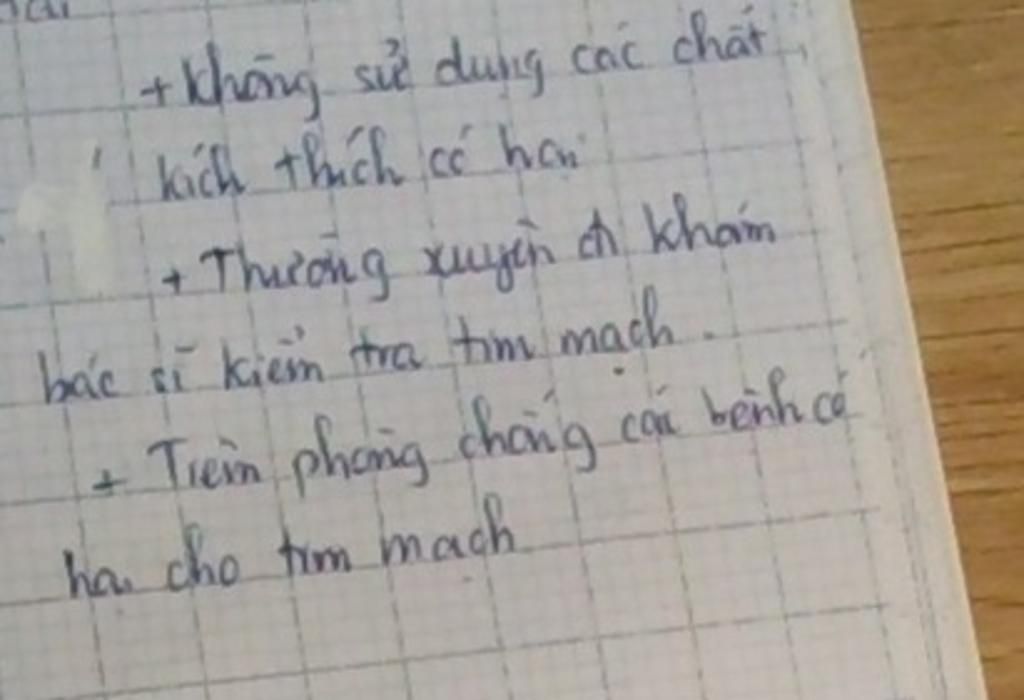 + Không sử dụng các chất
kích thích có hại
+ Thường xuyên đi khám
bác sĩ kiểm tra tim mạch.
+ Tiêm phòng chống các bệnh có
hại cho tim mạch